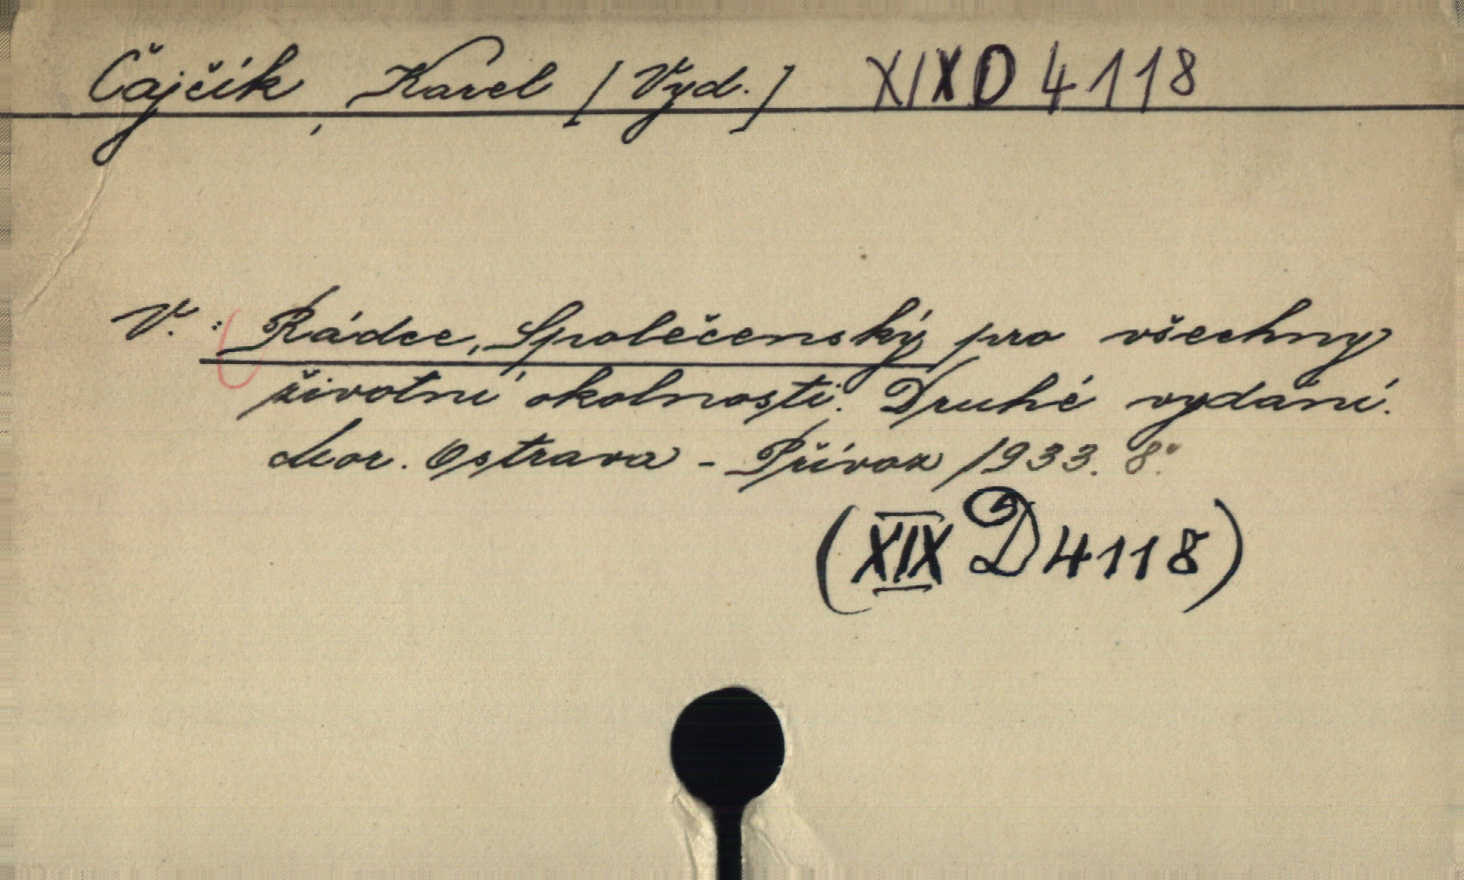 Čajčík, Karel [Vyd.] XIX D 4118
V. : Rádce, Společenský pro všechny
životní okolnosti. Druhé vydání.
Mor. Ostrava - Přívoz 1933. 8°.
(XIX D 4118)